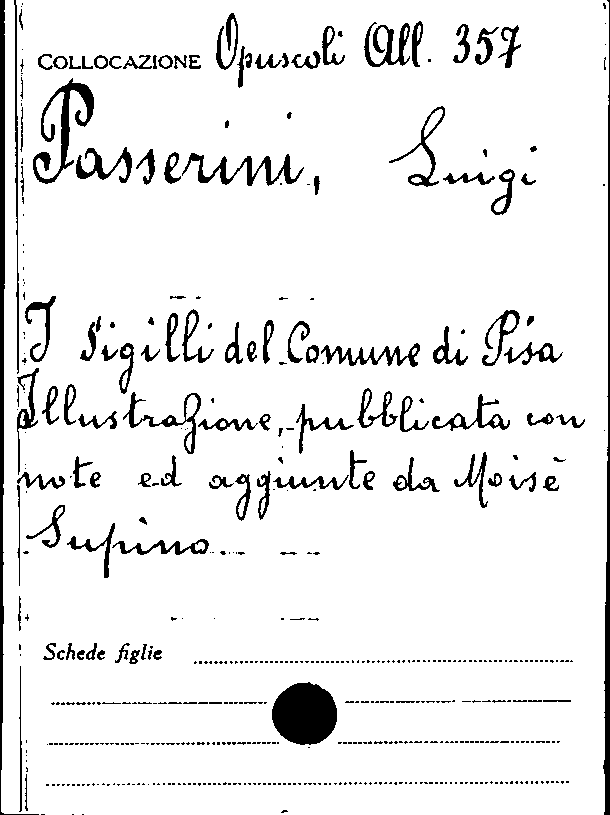 COLLOCAZIONE Opuscoli All. 357
Passerini, Luigi
I Sigilli del Comune di Pisa
Illustrazione, pubblicata con
note ed aggiunte da Moisè
Supino.
Schede figlie